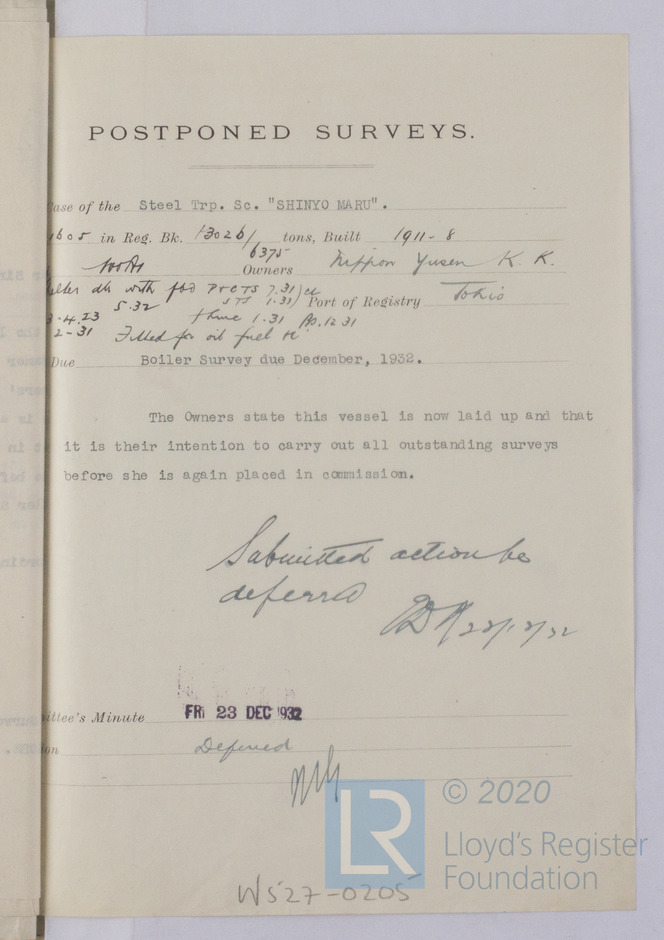 POSTPONED SURVEYS.
ase of the Steel Trp. Sc. "SHINYO MARU".
1605 in Reg. Bk. 13026/6375 tons, Built 1911-8
Owners Nippon Yusen K. K.
with fbd 7.31)
5.32 1.31) Port of Registry Tokio
4.23 1.31 12 31
2-31 Fitted for oil fuel
Due Boiler Survey due December, 1932.
The Owners state this vessel is now laid up and that
it is their intention to carry out all outstanding surveys
before she is again placed in commission.
Submitted action be
deferred
22/12/32
ittee's Minute FRI 23 DEC 1932
ion Deferred
LR
© 2020
Lloyd's Register
Foundation
W527-0205